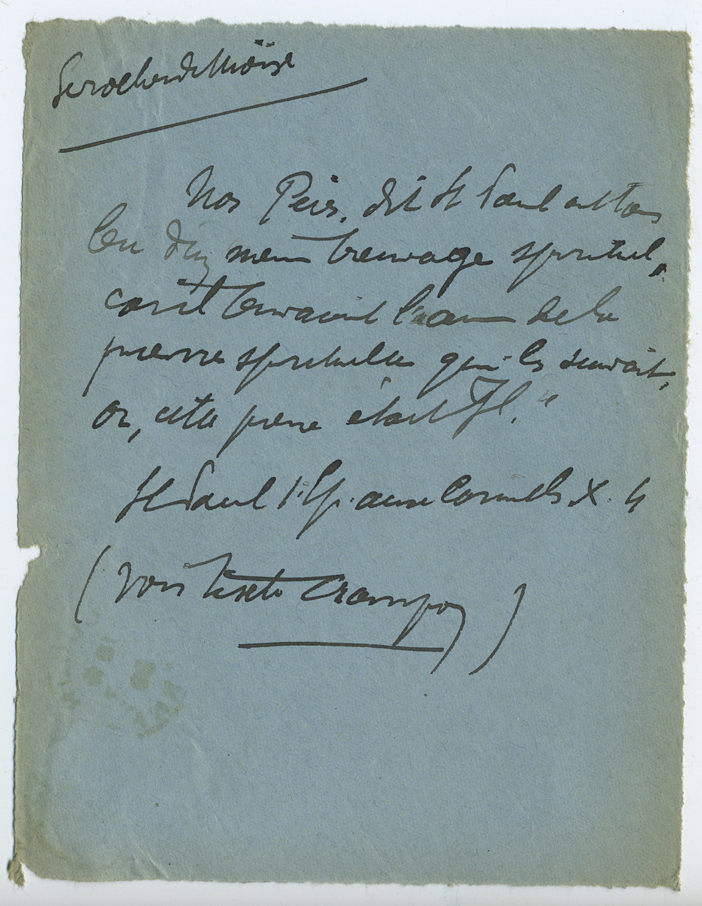 Le rocher de Moïse
Nos Pères, dit St Paul ont tous
bu d'un même breuvage spirituel,
car ils buvaient l'eau de la
pierre spirituelle qui les suivait,
or, cette pierre était
St Paul 1. Ep. aux Corinth X. 4
(Voir texte Crampon)